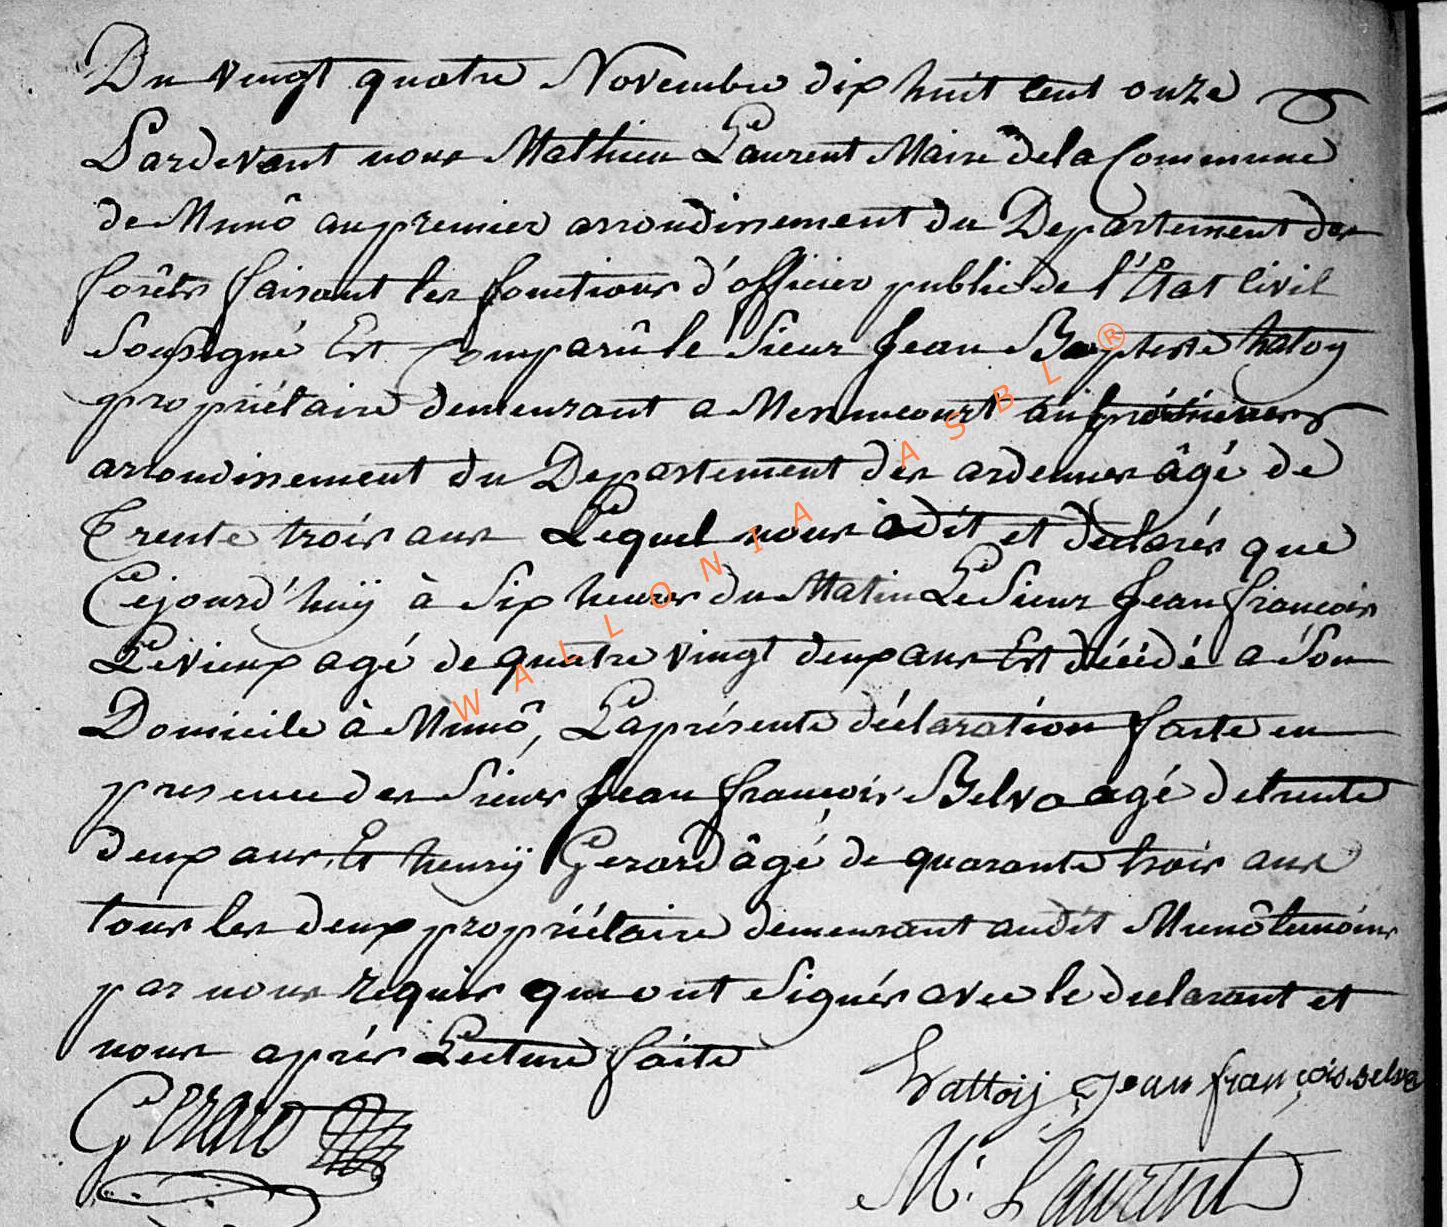 Du vingt quatre Novembre dix huit cent onze
Pardevant nous Mathieu Laurent Maire de la Commune
de Munô au premier arrondissement du Departement des
forêts faisant les fonctions d'officier public de l'Etat Civil
Soussigné Est Comparû le Sieur Jean Baptiste hatoy
propriétaire demeurant a Messincourt au
arrondissement du Departement des ardennes âgé de
Trente trois ans Lequel nous à dit et declarés que
Cejourd'huÿ à Six heures du Matin Le Sieur Jean françois
Levieux agé de quatre vingt deux ans Est décédé a Son
Domicile à Munô, La présente déclaration faite en
presence des Sieurs Jean françois Belva agé de trente
deux ans, Et henrÿ Gerard âgé de quarante trois ans
tous les deux propriétaire demeurant audit Munô temoins
par nous requis qui ont Signés avec le declarant et
nous après Lecture faite
hattoij Jean françois belva
Gerard
M. Laurent
WALLONIA ASBL ®